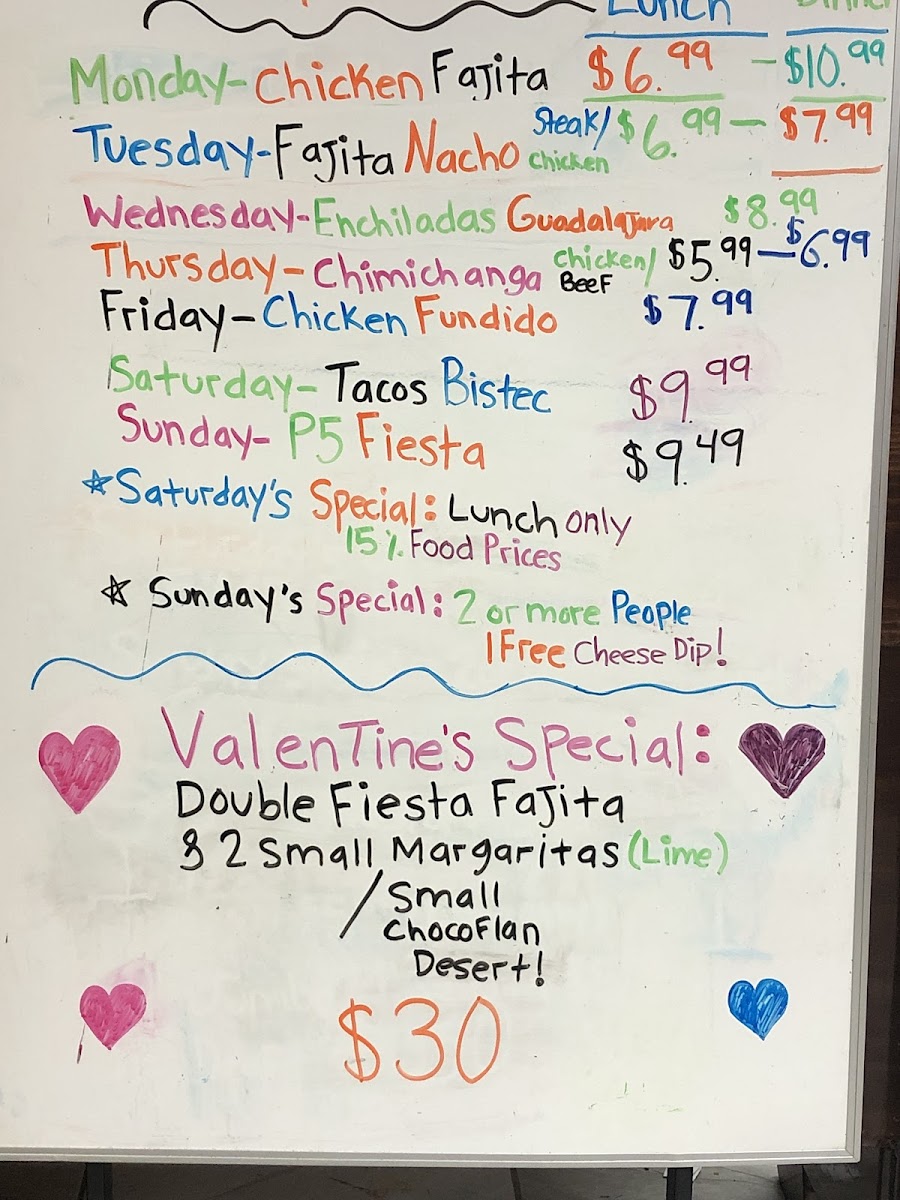 Lunch Dinner
Monday- Chicken Fajita $6.99 - $10.99
Tuesday- Fajita Nacho Steak/ chicken $6.99 - $7.99
Wednesday- Enchiladas Guadalajara $8.99
Thursday- Chimichanga chicken/ Beef $5.99 - $6.99
Friday- Chicken Fundido $7.99
Saturday- Tacos Bistec $9.99
Sunday- P5 Fiesta $9.49
*Saturday's Special: Lunch only
15% Food Prices
* Sunday's Special: 2 or more People
1 Free Cheese Dip!
Valentine's Special:
Double Fiesta Fajita
& 2 Small Margaritas (Lime)
/ Small
ChocoFlan
Desert!
$30